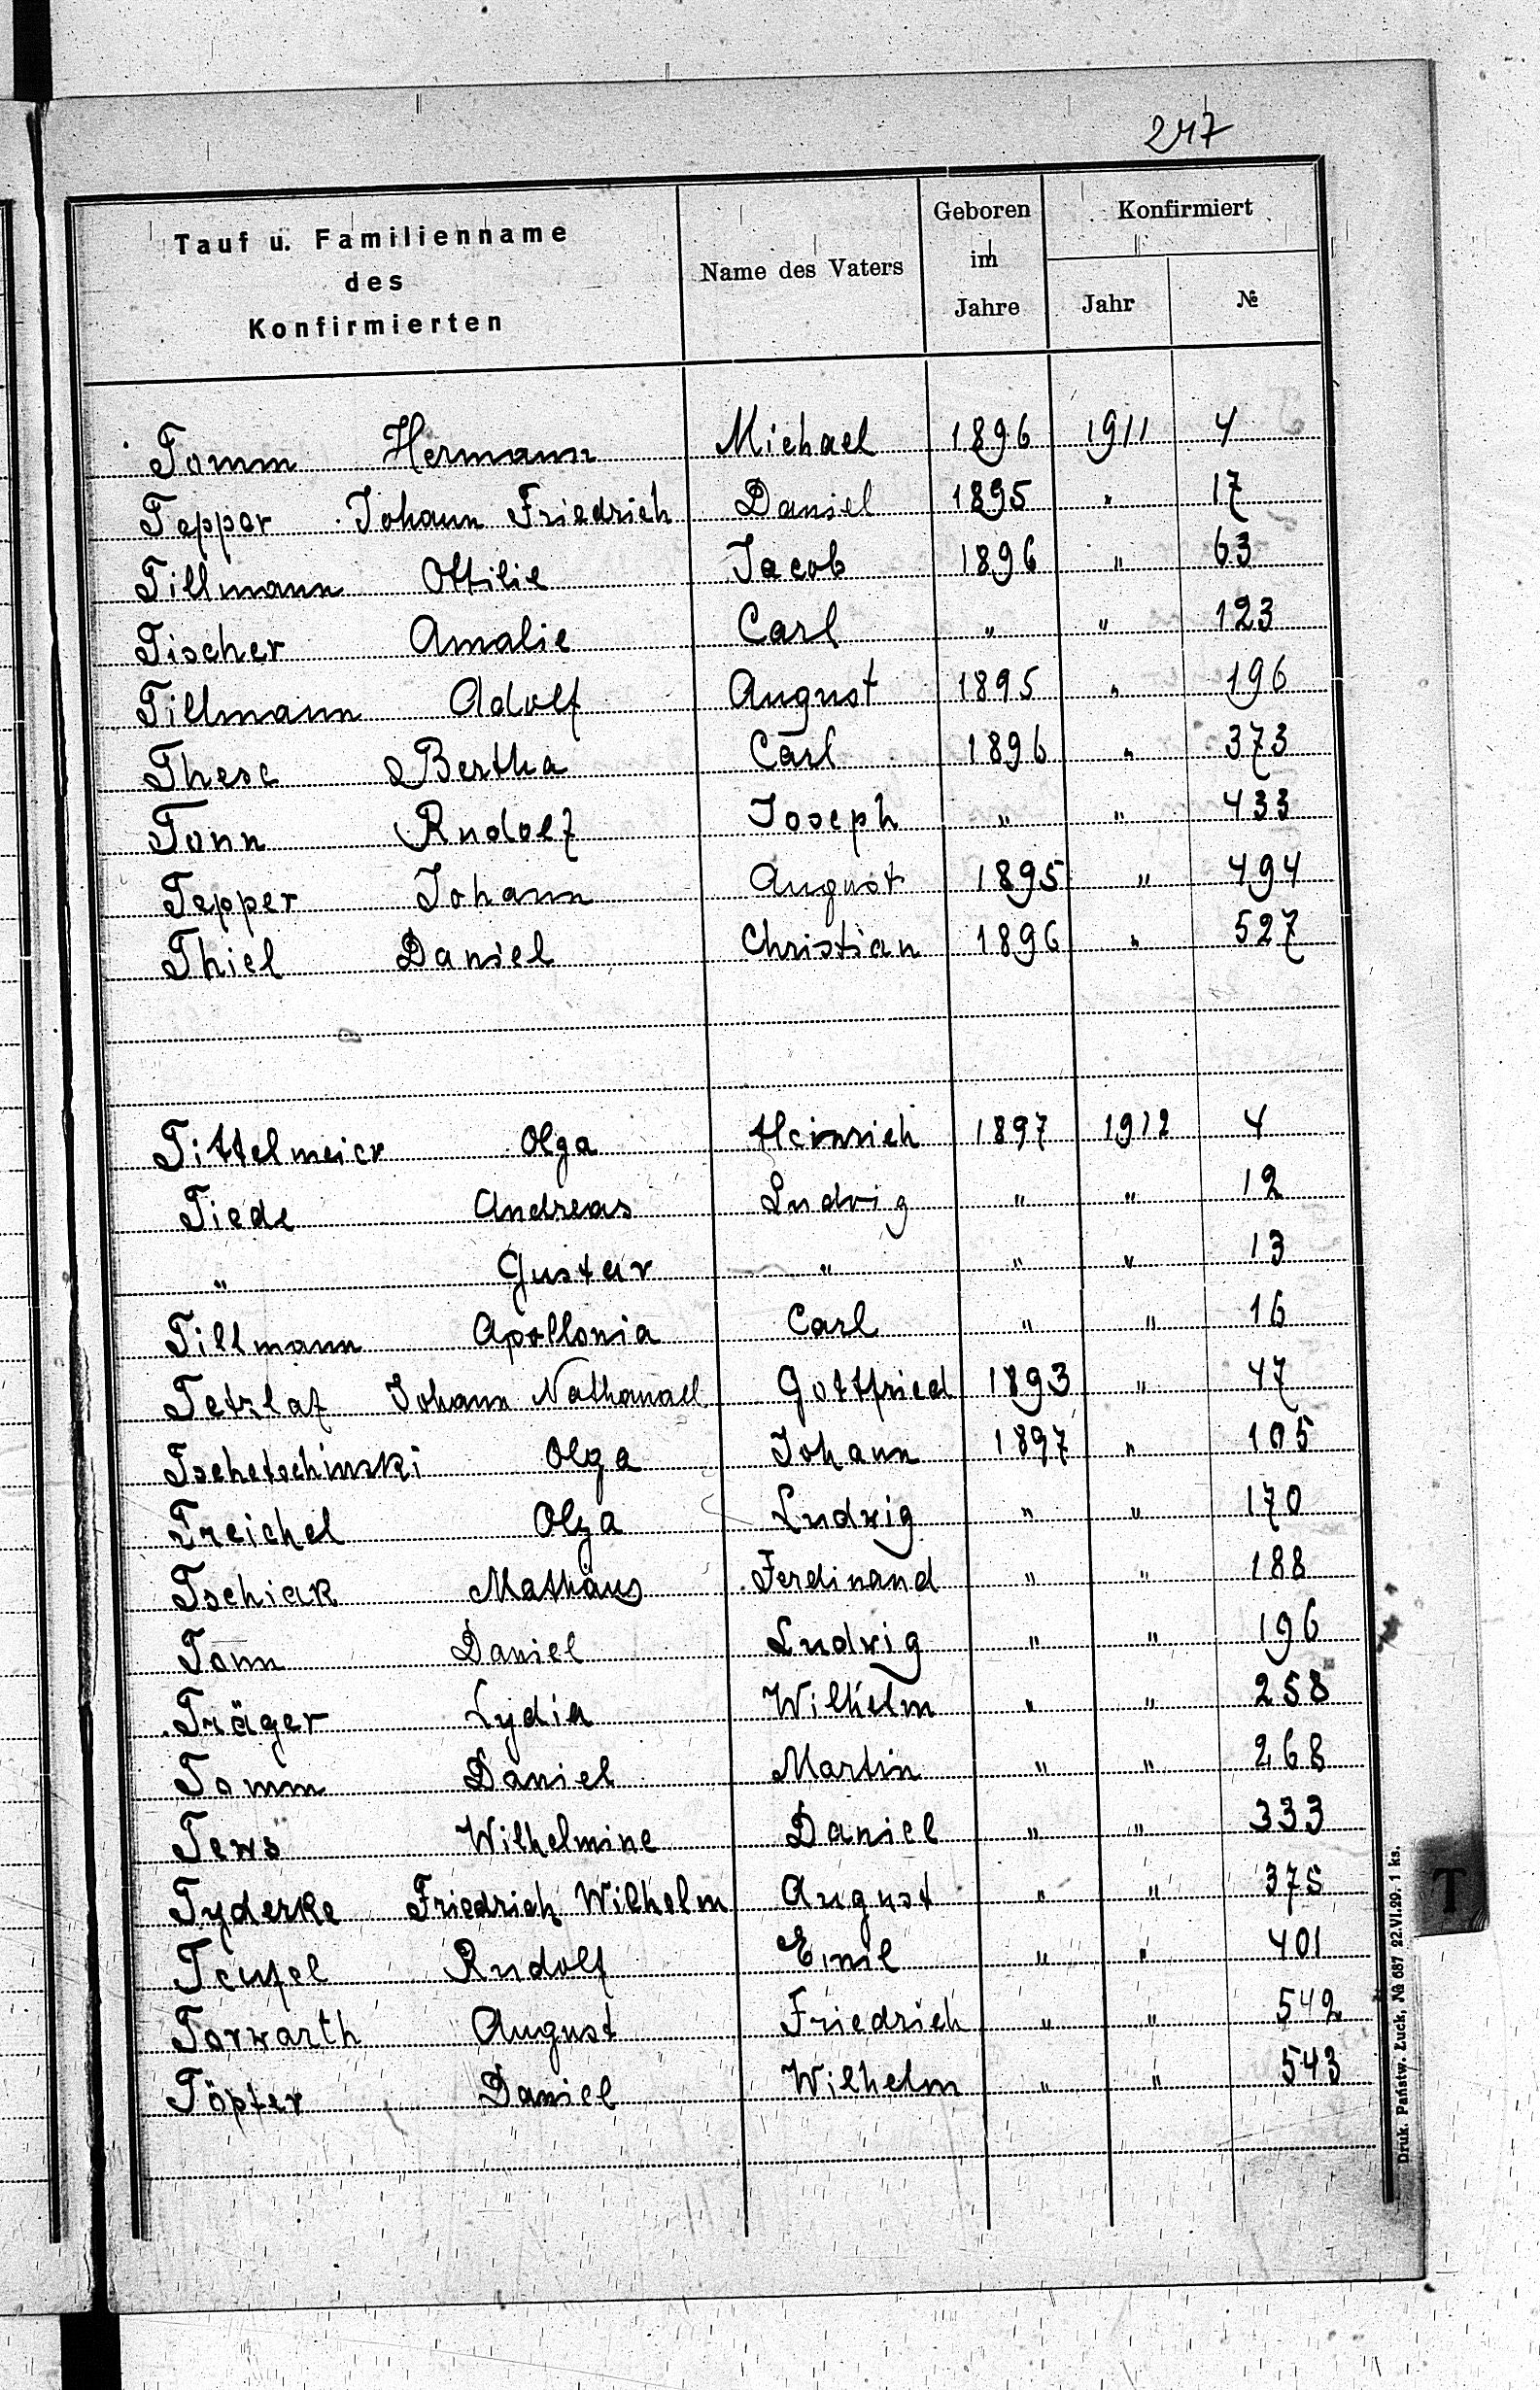 247
Tauf u. Familienname
des
Konfirmierten
Name des Vaters
Geboren
im
Jahre
Konfirmiert
Jahr
№
Tomm Hermann Michael 1896 1911 4
Tepper Johann Friedrich Daniel 1895 " 17
Tillmann Ottilie Jacob 1896 " 63
Tischer Amalie Carl " " 123
Tillmann Adolf August 1895 " 196
These Bertha Carl 1896 " 373
Tonn Rudolf Joseph " " 433
Tepper Johann August 1895 " 494
Thiel Daniel Christian 1896 " 527
Tittelmeier Olga Heinrich 1897 1912 4
Tiede Andreas Ludwig " " 12
" Gustav " " " 13
Tillmann Apollonia Carl " " 16
Tetzlaf Johann Nathanael Gottfried 1893 " 47
Tschetschinski Olga Johann 1897 " 105
Treichel Olga Ludwig " " 170
Tschiak Mathäus Ferdinand " " 188
Tonn Daniel Ludwig " " 196
Träger Lydia Wilhelm " " 258
Tomm Daniel Martin " " 268
Tews Wilhelmine Daniel " " 333
Tyderke Friedrich Wilhelm August " " 375
Teufel Rudolf Emil " " 401
Torwarth August Friedrich " " 542
Töpfer Daniel Wilhelm " " 543
T
Druk. Państw. Łuck, № 687 22.VI.29. 1 ks.